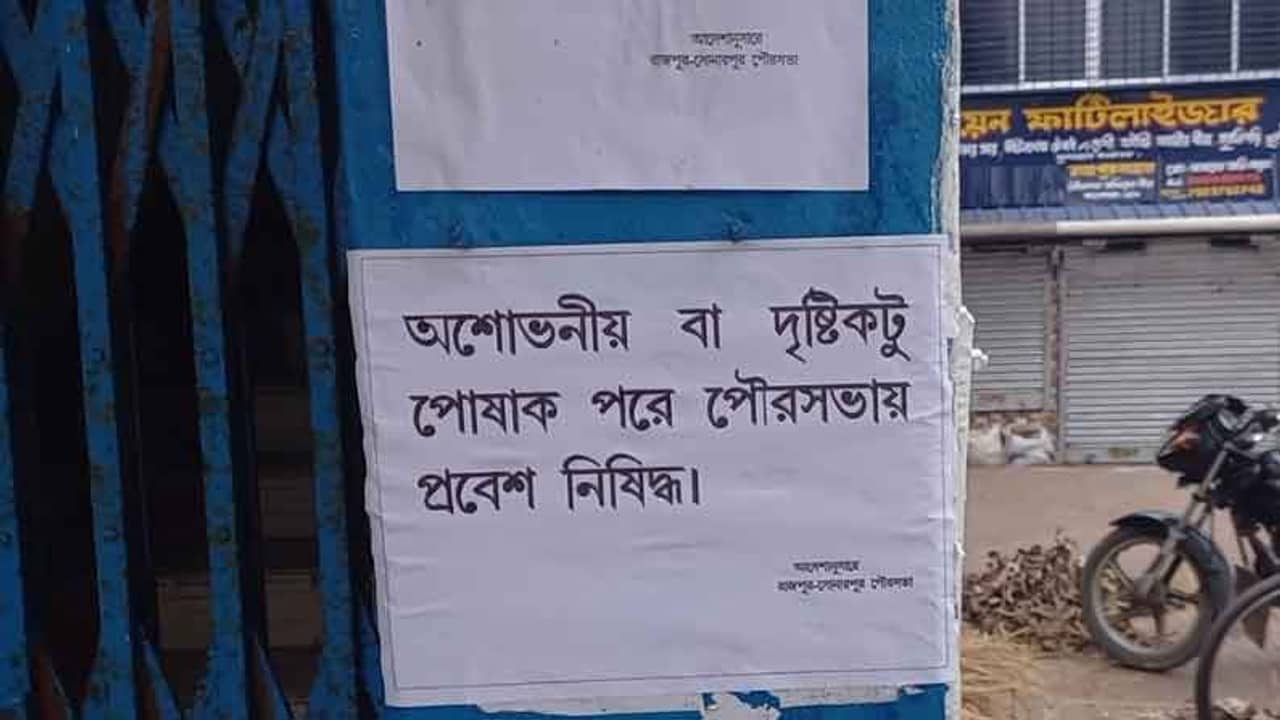 আদেশানুসারে
রাজপুর-সোনারপুর পৌরসভা
য়েন ফার্টিলাইজার
অশোভনীয় বা দৃষ্টিকটু
পোষাক পরে পৌরসভায়
প্রবেশ নিষিদ্ধ।
আদেশানুসারে
রাজপুর-সোনারপুর পৌরসভা